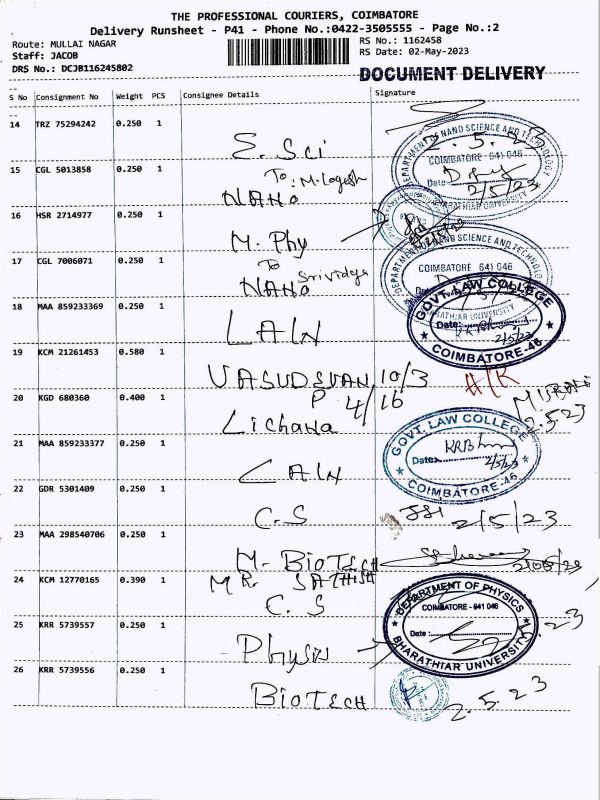 THE PROFESSIONAL COURIERS, COIMBATORE
Delivery Runsheet - P41 - Phone No.:0422-3505555 - Page No.:2
Route: MULLAI NAGAR
RS No.: 1162458
Staff: JACOB
RS Date: 02-May-2023
DRS No.: DCJB116245802
DOCUMENT DELIVERY
S No Consignment No Weight PCS Consignee Details Signature
14 TRZ 75294242 0.250 1
E. Sci
2.5.23
DEPARTMENT OF NANO SCIENCE AND TECHNOLOGY
COIMBATORE - 641 046
Date
2/5/23
BHARATHIAR UNIVERSITY
15 CGL 5013858 0.250 1
To: M. Logesh
NANO
16 HSR 2714977 0.250 1
M. Phy
2/5/23
17 CGL 7006071 0.250 1
To Srividya
NANO
DEPARTMENT OF NANO SCIENCE AND TECHNOLOGY
COIMBATORE 641 046
BHARATHIAR UNIVERSITY
18 MAA 859233369 0.250 1
LAW
GOVT. LAW COLLEGE
Date:
2/5/23
COIMBATORE-46
19 KCM 21261453 0.580 1
VASUDEVAN 10/3
P 4/16
20 KGD 680360 0.400 1
Lichana
2.5.23
21 MAA 859233377 0.250 1
LAW
GOVT. LAW COLLEGE
Date:
2/5/23
COIMBATORE-46
22 GDR 5301409 0.250 1
C.S
2/5/23
23 MAA 298540706 0.250 1
M. BIOTECH
2/05/23
24 KCM 12770165 0.390 1
MR. SATHISH
C.S
DEPARTMENT OF PHYSICS
COIMBATORE - 641 046
Date :
BHARATHIAR UNIVERSITY
25 KRR 5739557 0.250 1
Physics
26 KRR 5739556 0.250 1
BIOTECH
2.5.23